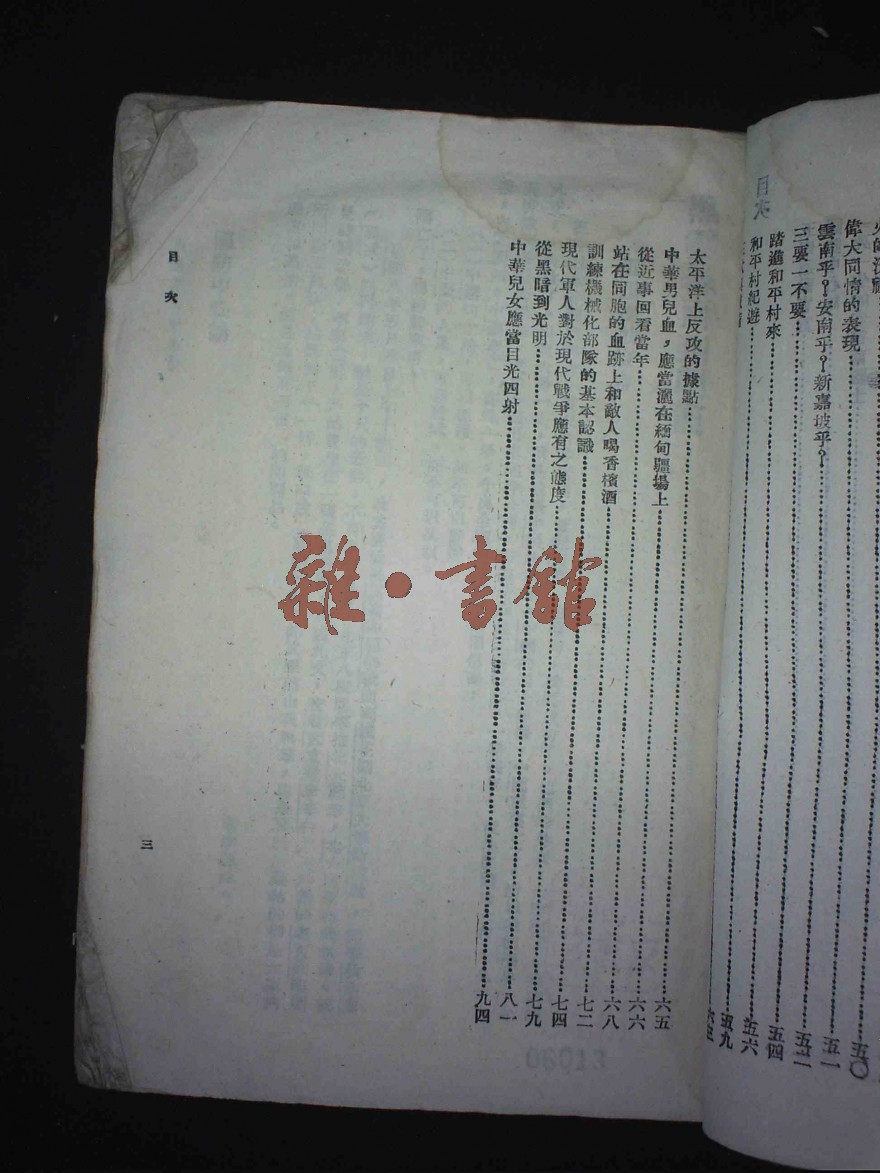 目次
偉大同情的表現……五〇
雲南乎?安南乎?新嘉坡乎?……五一
三要一不要……五二
踏進和平村來……五四
和平村紀遊……五六
五九
太平洋上反攻的據點……六五
中華男兒血,應當灑在緬甸疆場上……六六
從近事回看當年……六八
站在同胞的血跡上和敵人喝香檳酒……七二
訓練機械化部隊的基本認識……七四
現代軍人對於現代戰爭應有之態度……七九
從黑暗到光明……八一
中華兒女應當目光四射……九四
目次
三
雜·書館